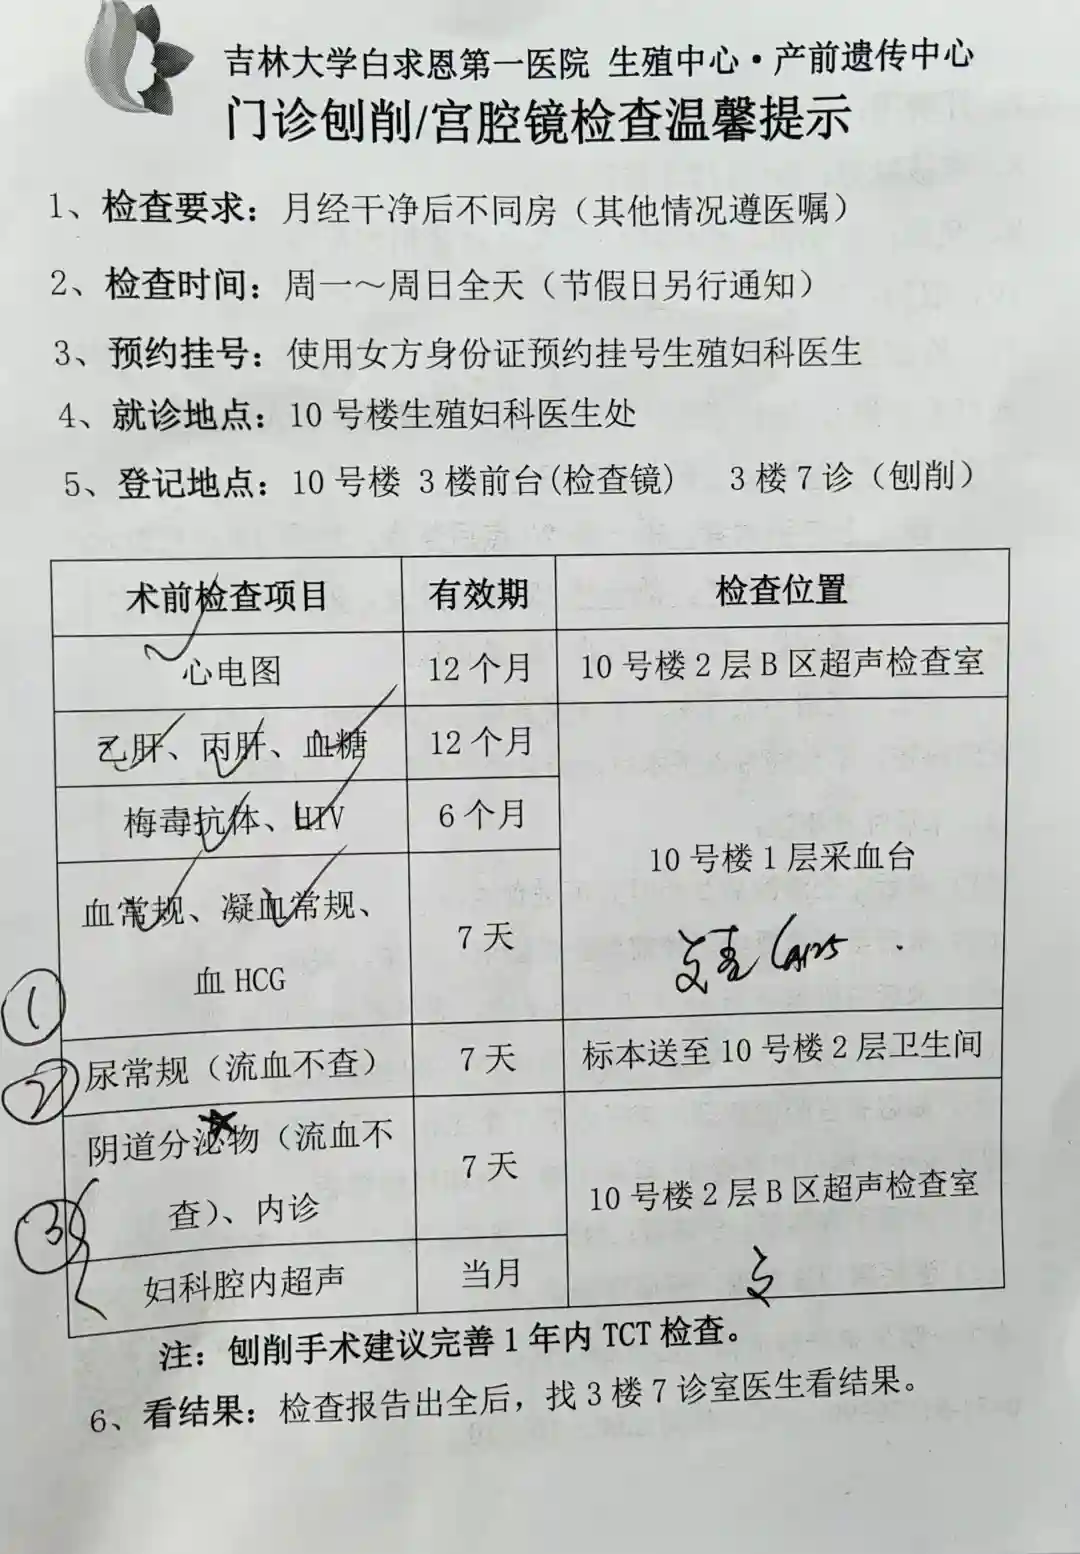 吉林大学白求恩第一医院 生殖中心·产前遗传中心
门诊刨削/宫腔镜检查温馨提示
1、检查要求：月经干净后不同房（其他情况遵医嘱）
2、检查时间：周一～周日全天（节假日另行通知）
3、预约挂号：使用女方身份证预约挂号生殖妇科医生
4、就诊地点：10 号楼生殖妇科医生处
5、登记地点：10 号楼 3 楼前台(检查镜) 3 楼 7 诊（刨削）
术前检查项目 有效期 检查位置
心电图 12 个月 10 号楼 2 层 B 区超声检查室
乙肝、丙肝、血糖 12 个月
梅毒抗体、HIV 6 个月
10 号楼 1 层采血台
血常规、凝血常规、
7 天
血 HCG
CA125
①
尿常规（流血不查） 7 天 标本送至 10 号楼 2 层卫生间
②
阴道分泌物（流血不
7 天
查）、内诊
10 号楼 2 层 B 区超声检查室
③
妇科腔内超声 当月
注：刨削手术建议完善 1 年内 TCT 检查。
6、看结果：检查报告出全后，找 3 楼 7 诊室医生看结果。